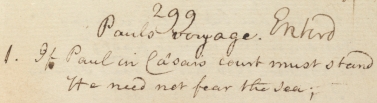 299
Pauls voyage. Enterd
1. If Paul in Cæsars court must stand
He need not fear the sea;